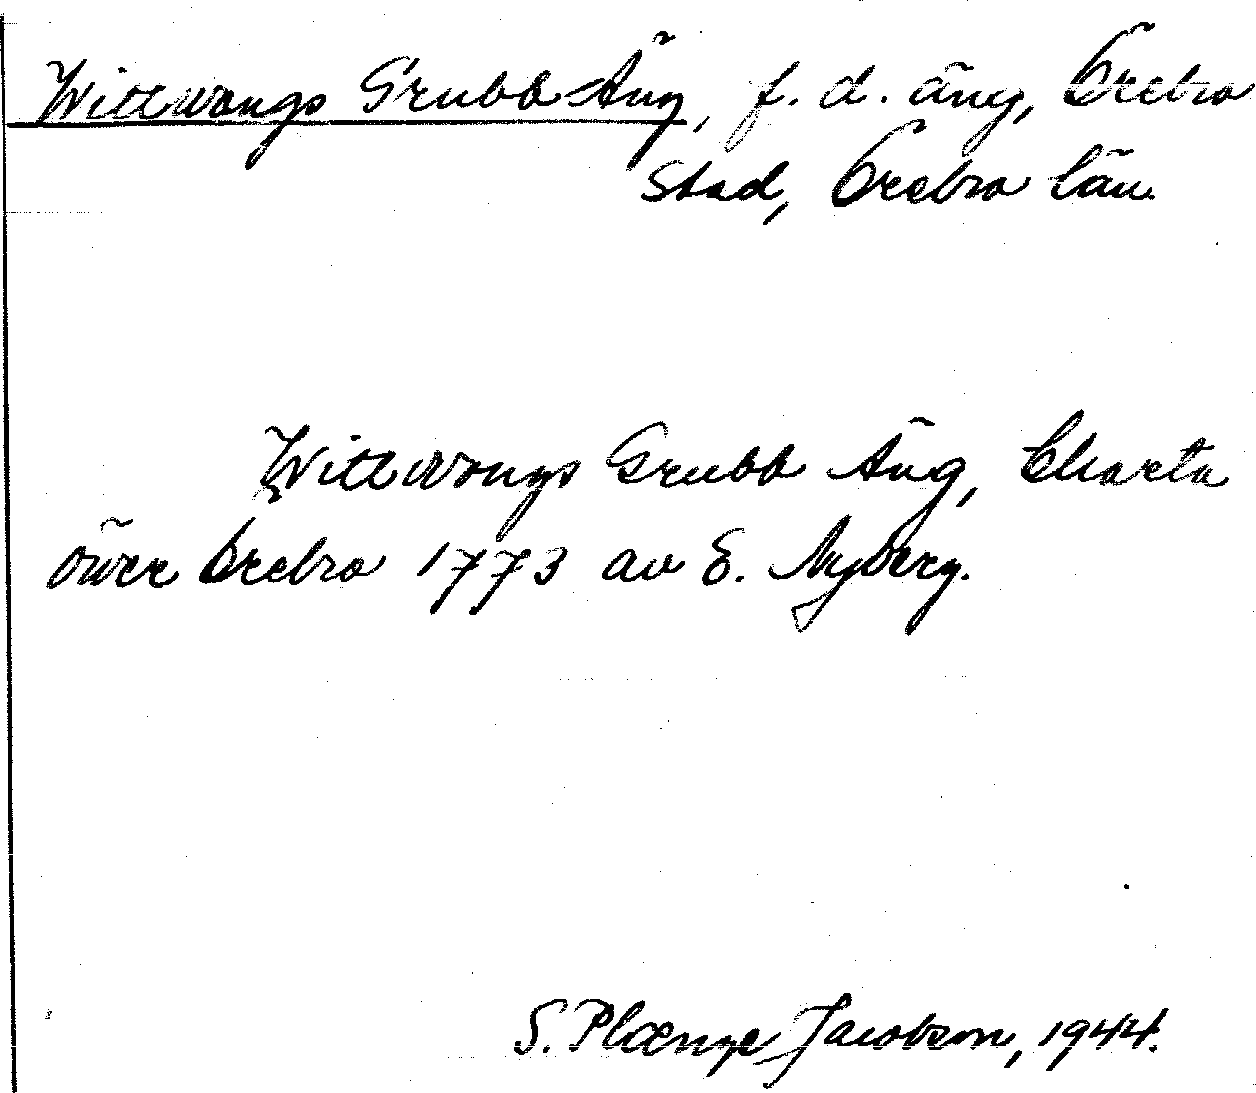 Wittwångs Grubb Äng, f. d. äng, Örebro
stad, Örebro län.
Wittwångs Grubb Äng, Charta
öwer Örebro 1773 av E. Nyberg.
S. Plænge Jacobson, 1944.